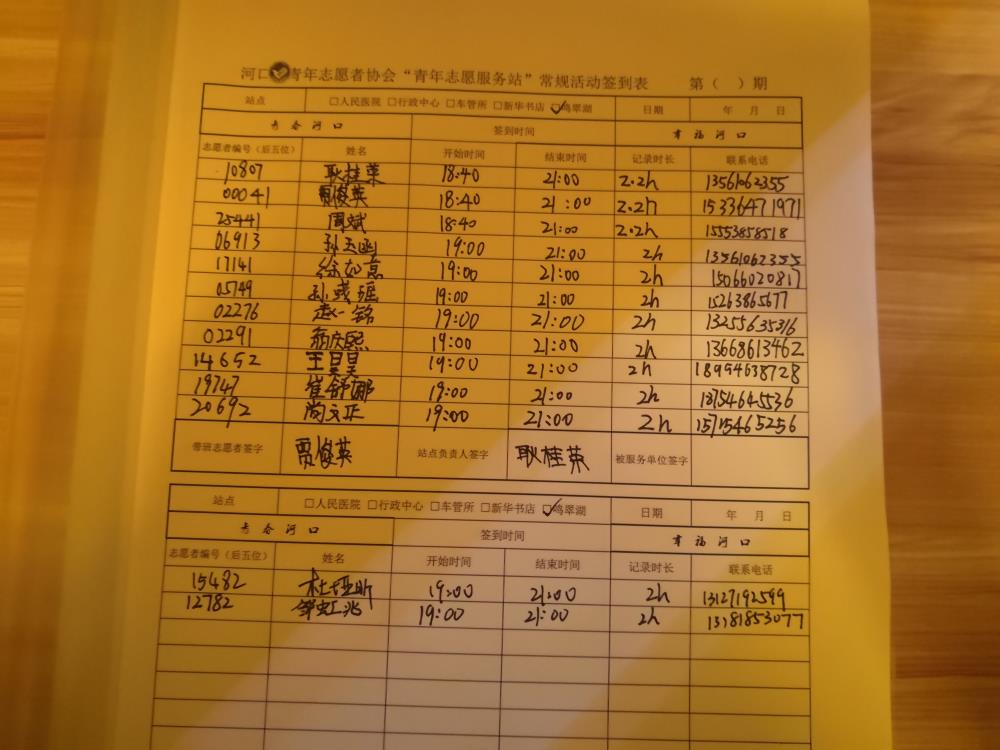 河口青年志愿者协会“青年志愿服务站”常规活动签到表 第（ ）期
站点 □人民医院 □行政中心 □车管所 □新华书店 □鸣翠湖 日期 年 月 日
青春河口 签到时间 幸福河口
志愿者编号（后五位） 姓名 开始时间 结束时间 记录时长 联系电话
10807 耿桂荣 18:40 21:00 2.2h 13561062355
00041 贾俊英 18:40 21:00 2.2h 15336471971
25441 周斌 18:40 21:00 2.2h 15553858518
06913 孙玉函 19:00 21:00 2h 13561062355
17141 徐如意 19:00 21:00 2h 15066020817
05749 孙 19:00 21:00 2h 15263865677
02276 赵一铭 19:00 21:00 2h 13255635316
02291 庆熙 19:00 21:00 2h 13668613462
14652 王昊昊 19:00 21:00 2h 18954638728
19747 崔舒娜 19:00 21:00 2h 18754645536
20692 尚文正 19:00 21:00 2h 15715465256
带班志愿者签字 贾俊英 站点负责人签字 耿桂荣 被服务单位签字
站点 □人民医院 □行政中心 □车管所 □新华书店 □鸣翠湖 日期 年 月 日
青春河口 签到时间 幸福河口
志愿者编号（后五位） 姓名 开始时间 结束时间 记录时长 联系电话
15482 杜亚昕 19:00 21:00 2h 13127192599
12782 19:00 21:00 2h 13181853077